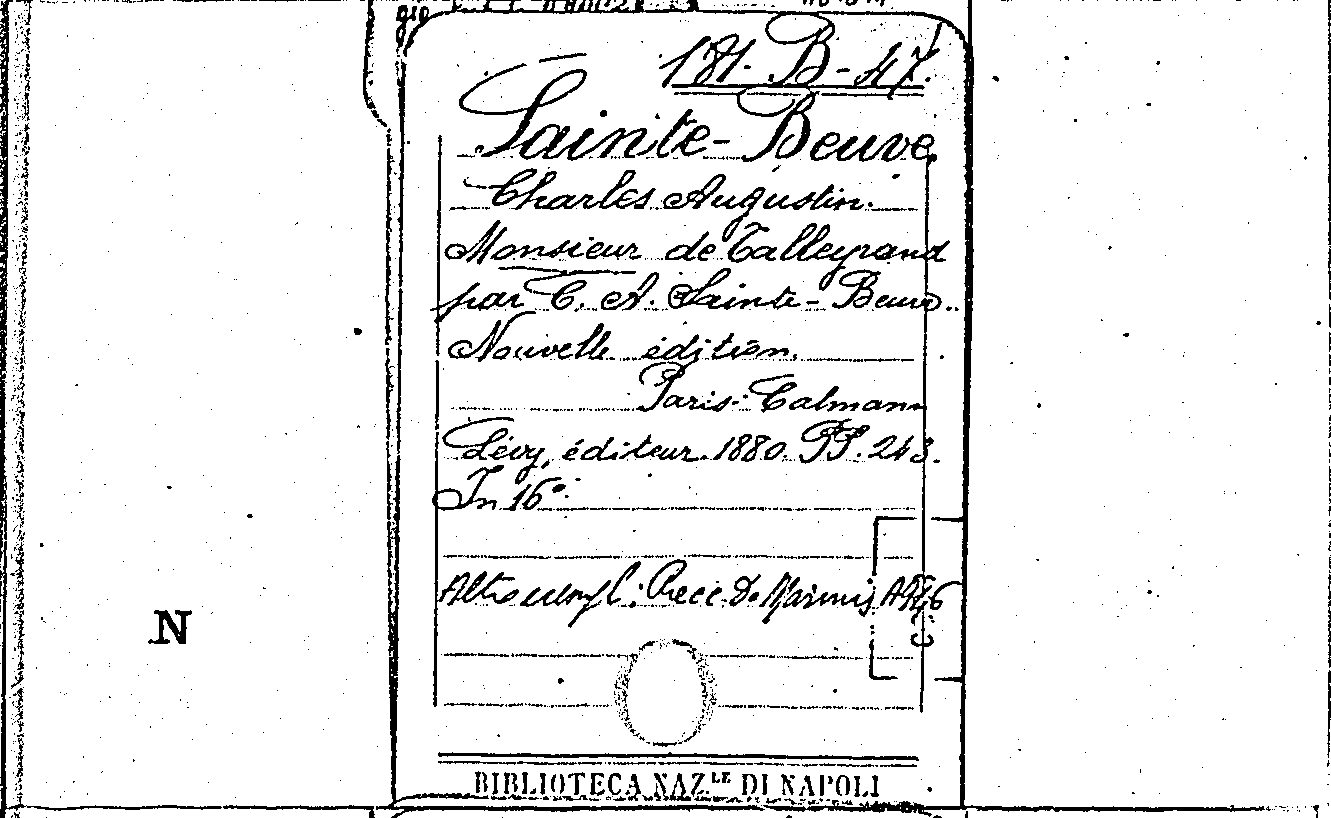 181. B - 47.
Sainte-Beuve,
Charles Augustin.
Monsieur de Talleyrand
par C. A. Sainte-Beuve..
Nouvelle édition.
Paris. Calmann
Lévy, éditeur. 1880. PP. 243.
In 16°.
Altro esempl: Racc. De Marinis A
N
BIBLIOTECA NAZ.LE DI NAPOLI